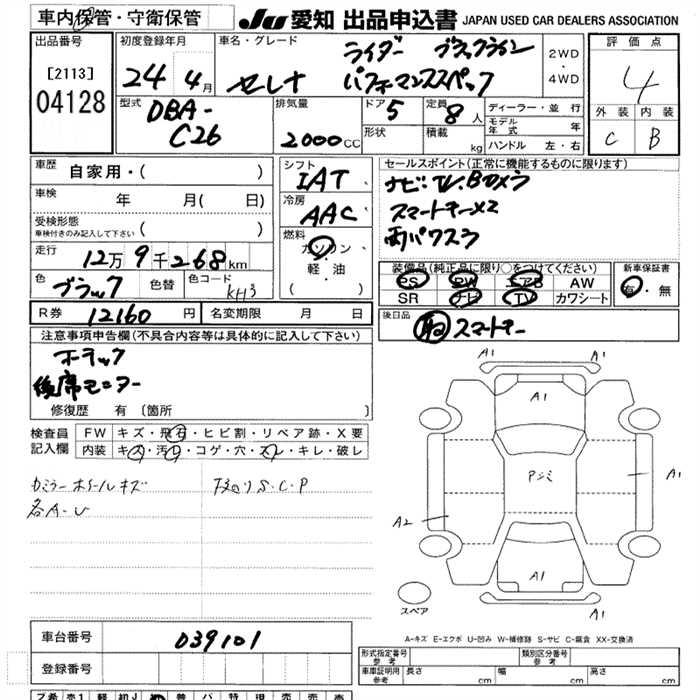 車内保管・守衛保管
JU 愛知 出品申込書 JAPAN USED CAR DEALERS ASSOCIATION
出品番号
[2113]
04128
初度登録年月
24年4月
車名・グレード
セレナ
ライダー ブラックライン
パフォーマンススペック
2WD
・
4WD
評価点
4
外装 内装
C B
型式
DBA-
C26
排気量
2000CC
ドア
5
形状
定員
8人
積載
kg
ディーラー・並行
モデル年式 年
ハンドル 左・右
車歴 自家用・( )
車検 年 月( 日)
受検形態
車検付きのみ記入して下さい ( )
走行 12万9千268km
色 ブラック 色替 色コード KH3
シフト
IAT
冷房
AAC
燃料
ガソリン・
軽油
( )
セールスポイント(正常に機能するものに限ります)
ナビ・TV.Bカメラ
スマートキー×2
両パワスラ
装備品(純正品に限り○をつけてください)
PS PW エアB AW
SR ナビ TV カワシート
新車保証書
有・無
R券 12160円 名変期限 月 日
後日品
スマートキー
注意事項申告欄(不具合内容等は具体的に記入して下さい)
ホラック
後席モニター
修復歴 有〔箇所 〕
検査員
記入欄
FW キズ・飛石・ヒビ割・リペア跡・X要
内装 キズ・汚れ・コゲ・穴・スレ・キレ・破レ
カミラー ホイールキズ
各A-U
下回りS.C.P
A1 A1
A1
Pジミ
A1
A2
A1
A1
スペア
A-キズ E-エクボ U-凹み W-補修跡 S-サビ C-腐食 XX-交換済
車台番号 039101
登録番号
形式指定番号
参考
類別区分番号
参考
車庫証明用
参考
長さ cm 幅 cm 高さ cm